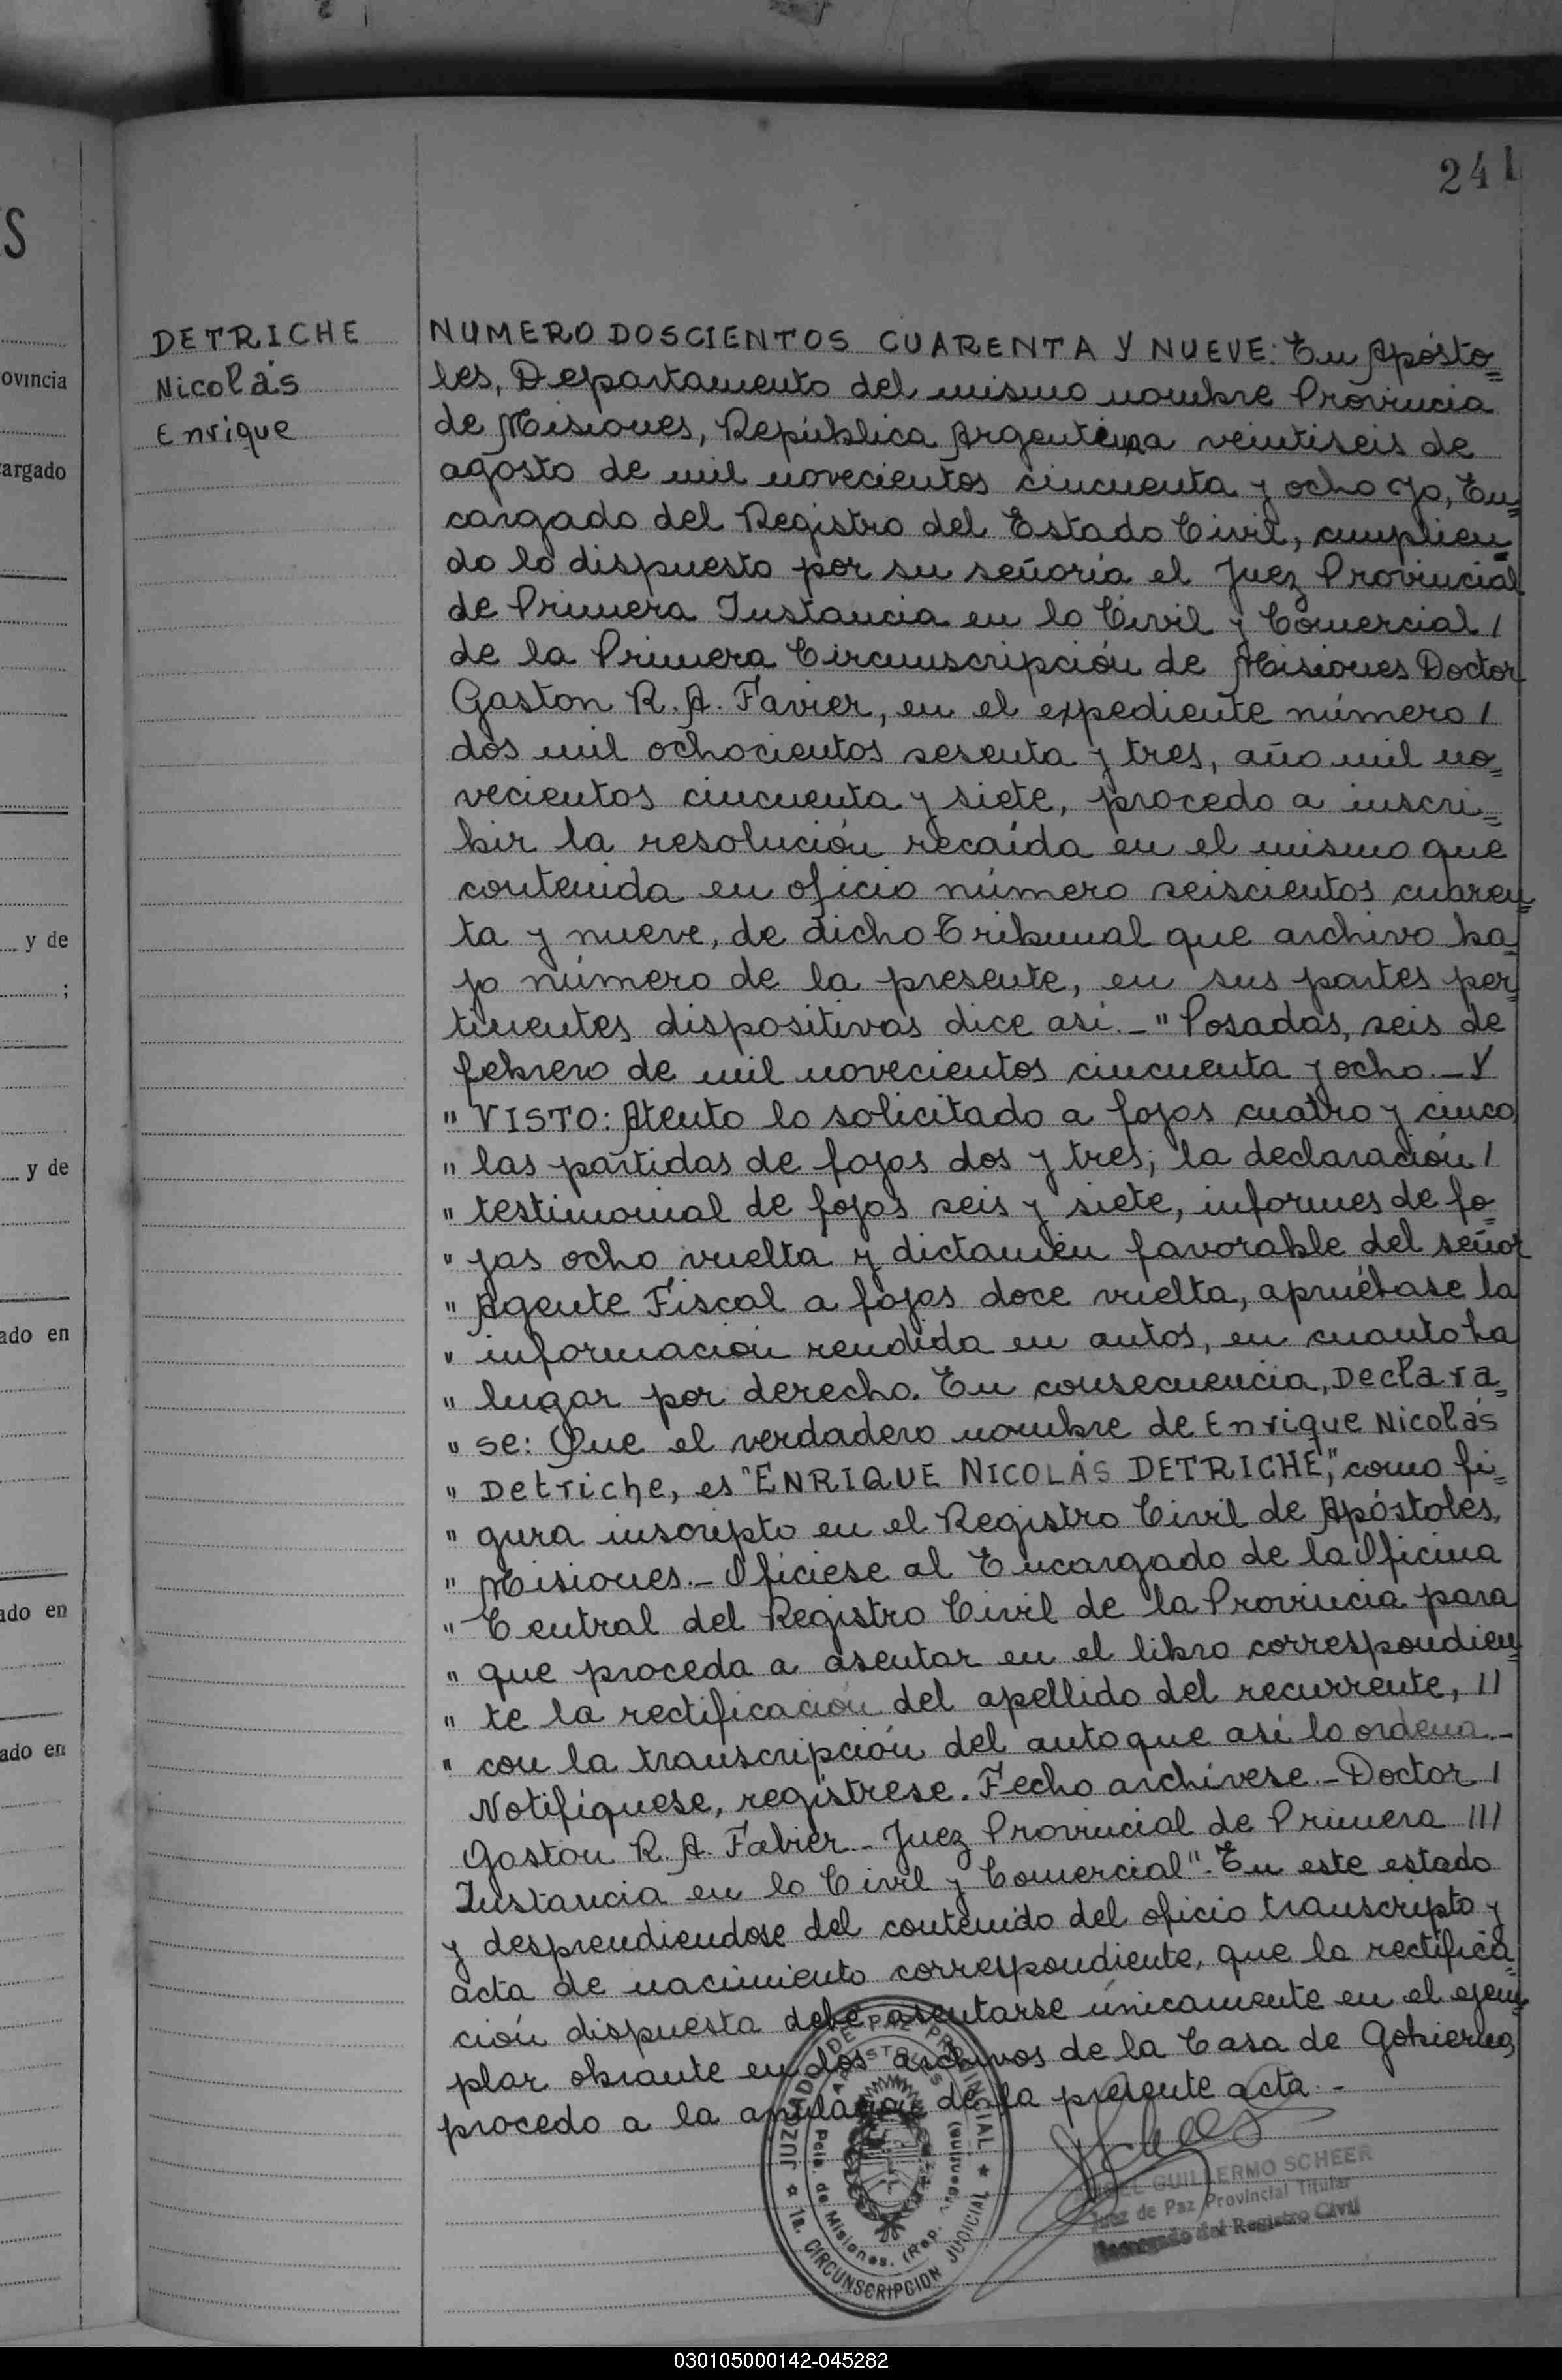 241
S
ovincia
argado
y de
;
y de
ado en
ado en
ado en
DETRICHE
Nicolás
Enrique
NUMERO DOSCIENTOS CUARENTA Y NUEVE: En Apósto=
les, Departamento del mismo nombre Provincia
de Misiones, República Argentina veintiseis de
agosto de mil novecientos cincuenta y ocho yo, En=
cargado del Registro del Estado Civil, cumplien=
do lo dispuesto por su señoría el Juez Provincial
de Primera Instancia en lo Civil y Comercial /
de la Primera Circunscripción de Misiones Doctor
Gaston R. A. Favier, en el expediente número /
dos mil ochocientos sesenta y tres, año mil no=
vecientos cincuenta y siete, procedo a inscri=
bir la resolución recaída en el mismo que
contenida en oficio número seiscientos cuaren=
ta y nueve, de dicho Tribunal que archivo ba=
jo número de la presente, en sus partes per=
tinentes dispositivas dice así.- "Posadas, seis de
febrero de mil novecientos cincuenta y ocho.- Y
" VISTO: Atento lo solicitado a fojas cuatro y cinco,
" las partidas de fojas dos y tres; la declaración /
" testimonial de fojas seis y siete, informes de fo=
" jas ocho vuelta y dictamen favorable del señor
" Agente Fiscal a fojas doce vuelta, apruébase la
" información rendida en autos, en cuanto ha
" lugar por derecho. En consecuencia, Declára=
" se: Que el verdadero nombre de Enrique Nicolás
" Detriche, es "ENRIQUE NICOLÁS DETRICHE", como fi=
" gura inscripto en el Registro Civil de Apóstoles,
" Misiones.- Ofíciese al Encargado de la Oficina
" Central del Registro Civil de la Provincia para
" que proceda a asentar en el libro correspondien=
" te la rectificación del apellido del recurrente, //
" con la transcripción del auto que así lo ordena.-
Notifíquese, regístrese. Fecho archívese.- Doctor /
Gaston R. A. Fabier - Juez Provincial de Primera ///
Instancia en lo Civil y Comercial".- En este estado
y desprendiendose del contenido del oficio transcripto y
acta de nacimiento correspondiente, que la rectifica=
ción dispuesta debe asentarse únicamente en el ejem=
plar obrante en los archivos de la Casa de Gobierno,
procedo a la anulación de la presente acta.-
JUZGADO DE PAZ PROVINCIAL ★ 1a. CIRCUNSCRIPCION JUDICIAL ★
APOSTOLES
Pcia. de Misiones. (Rep. Argentina)
GUILLERMO SCHEER
Juez de Paz Provincial Titular
Encargado del Registro Civil
030105000142-045282